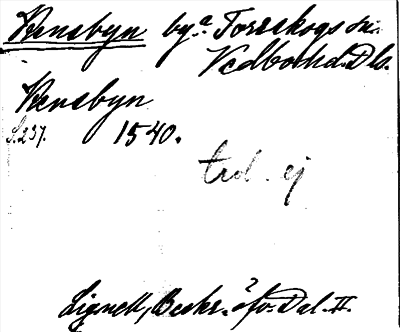 Rensbyn by.ª Torrskogs sn.
Vedbo hd. Dls.
Rensbyn
S. 237. 1540.
trol. ej
Lignell, Beskr. öfv. Dal. II.